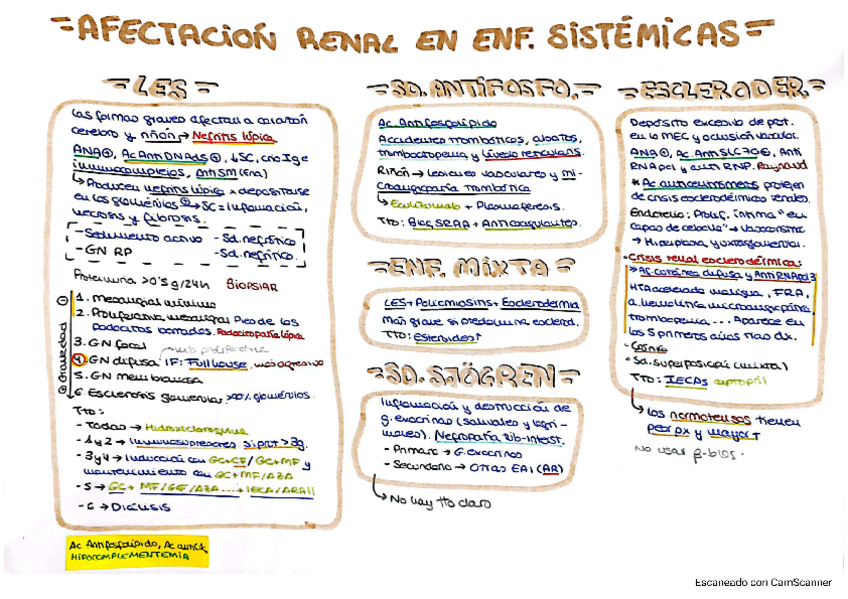 =AFECTACIÓN RENAL EN ENF. SISTÉMICAS=
=LES=
Las formas graves afectan a corazón
cerebro y riñón → Nefritis lúpica.
ANA⊕, Ac AntiDNAds⊕, ↓SC, crioIg e
inmunocomplejos, AntiSM (Ena)
↳ Producen nefritis lúpica x depositarse
en los glomérulos → SC = Inflamación,
necrosis y fibrosis.
-Sedimento activo -Sd. nefrótico
-GN RP -Sd. nefrítico.
Proteinuria >0'5g/24h BIOPSIAR
Gravedad
1. Mesangial mínima
2. Proliferativa mesangial Pies de los
podocitos borrados. Podocitopatía lúpica
3. GN focal
más proliferativa
4. GN difusa IF: Full house. más agresivo
5. GN membranosa
6. Esclerosis glomerular >90% glomérulos.
Tto:
- Todas → Hidroxicloroquina
- 1 y 2 → Inmunosupresores si prot >3g.
- 3 y 4 → Inducción con GC+CF/GC+MF y
mantenimiento con GC+MF/AZA
- 5 → GC+ MF/CF/AZA ...+ IECA/ARAII
- 6 → DIÁLISIS
Ac Antifosfolípido, Ac
HIPOCOMPLEMENTEMIA
=SD. ANTIFOSFO.=
Ac Antifosfolípido
Accidentes trombóticos, abortos,
trombocitopenia y livedo reticularis.
Riñón → Lesiones vasculares y mi-
croangiopatía trombótica
↳ Eculizumab + Plasmaféresis.
Tto: Bloq SRAA + Anticoagulantes.
=ENF. MIXTA=
LES + Polimiositis + Esclerodermia
Más grave si predomina esclerod.
Tto: Esteroides↑
=SD. SJÖGREN=
Inflamación y destrucción de
g. exocrinas (salivales y lagri-
males). Nefropatía túb-interst.
- Primario → G. exocrinas
- Secundario → Otras EAI (AR)
↳ No hay tto claro
=ESCLERODER.=
Depósito excesivo de prot.
en la MEC y oclusión vascular.
ANA⊕, Ac Anti SLC70⊕, Anti
RNApol y anti RNP. Raynaud
*Ac anticentrómero protegen
de crisis esclerodérmicas renales.
Endotelio: Prolif. íntima "en
capas de cebolla" → Vasoconstr
→ Hiperplasia yuxtaglomerular.
-Crisis renal esclerodérmica:
»Ac. cutánea difusa y Anti RNApol 3
HTA acelerada maligna, FRA,
a. hemolítica microangiopática
trombopenia... Aparece en
los 5 primeros años tras dx.
- Crónica
-Sd. superposición (mixta)
Tto: IECAs captopril
↳ Los normotensos tienen
peor px y mayor †
No usar β-bloq.
Escaneado con CamScanner